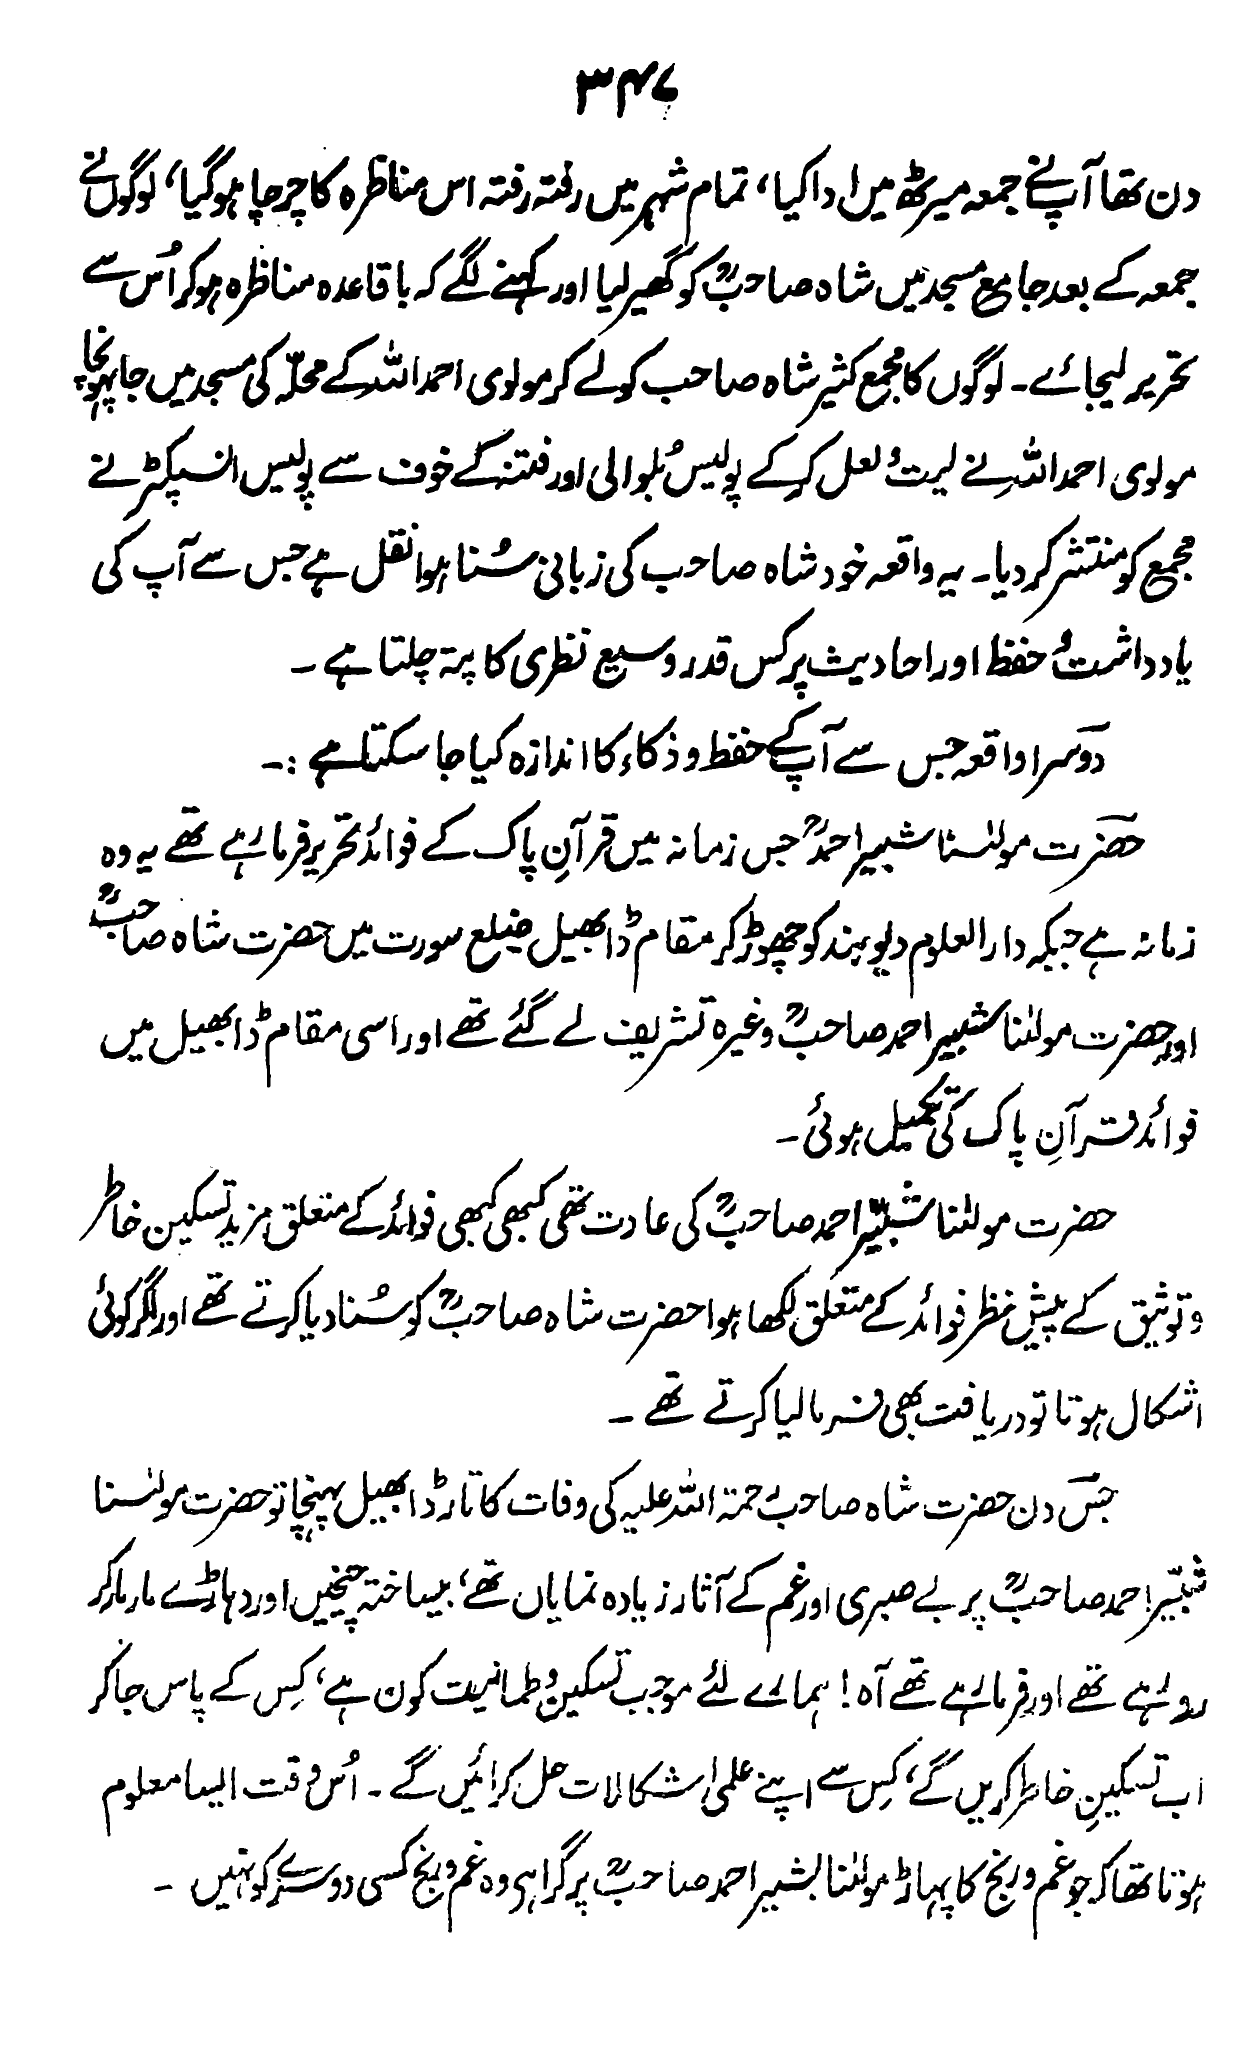 ۳۴۷
دن تھا آپ نے جمعہ میرٹھ میں ادا کیا، تمام شہر میں رفتہ رفتہ اس مناظرہ کا چرچا ہوگیا، لوگوں نے
جمعہ کے بعد جامع مسجد میں شاہ صاحبؒ کو گھیر لیا اور کہنے لگے کہ باقاعدہ مناظرہ ہوکر اُس سے
تحریر لیجائے۔ لوگوں کا مجمع کثیر شاہ صاحب کو لے کر مولوی احمد اللہ کے محلّہ کی مسجد میں جا پہونچا
مولوی احمد اللہ نے لیت و لعل کر کے پولیس بُلوالی اور فتنہ کے خوف سے پولیس انسپکٹر نے
مجمع کو منتشر کر دیا۔ یہ واقعہ خود شاہ صاحب کی زبانی سُنا ہوا نقل ہے جس سے آپ کی
یادداشت و حفظ اور احادیث پر کس قدر وسیع نظری کا پتہ چلتا ہے۔
دوسرا واقعہ جس سے آپ کے حفظ و ذکاء کا اندازہ کیا جا سکتا ہے :۔
حضرت مولٰنا شبیر احمدؒ جس زمانہ میں قرآنِ پاک کے فوائد تحریر فرما رہے تھے یہ وہ
زمانہ ہے جبکہ دارالعلوم دیوبند کو چھوڑ کر مقام ڈابھیل ضلع سورت میں حضرت شاہ صاحبؒ
اور حضرت مولٰنا شبیر احمد صاحبؒ وغیرہ تشریف لے گئے تھے اور اسی مقام ڈابھیل میں
فوائد قرآنِ پاک کی تکمیل ہوئی۔
حضرت مولٰنا شبیّر احمد صاحبؒ کی عادت تھی کبھی کبھی فوائد کے متعلق مزید تسکین خاطر
و توثیق کے پیشِ نظر فوائد کے متعلق لکھا ہوا حضرت شاہ صاحبؒ کو سُنا دیا کرتے تھے اور اگر کوئی
اشکال ہوتا تو دریافت بھی فرما لیا کرتے تھے۔
جس دن حضرت شاہ صاحب رحمۃ اللہ علیہ کی وفات کا تار ڈابھیل پہنچا تو حضرت مولٰنا
شبّیر احمد صاحبؒ پر بے صبری اور غم کے آثار زیادہ نمایاں تھے، بیساختہ چیخیں اور دہاڑے مار مار کر
رو رہے تھے اور فرما رہے تھے آہ! ہمارے لئے موجب تسکین و طمانیت کون ہے، کِس کے پاس جاکر
اب تسکینِ خاطر کریں گے، کِس سے اپنے علمی اشکالات حل کرائیں گے۔ اُس وقت ایسا معلوم
ہوتا تھا کہ جو غم و رنج کا پہاڑ مولٰنا بشیر احمد صاحبؒ پر گرا ہی وہ غم و رنج کسی دوسرے کو نہیں۔